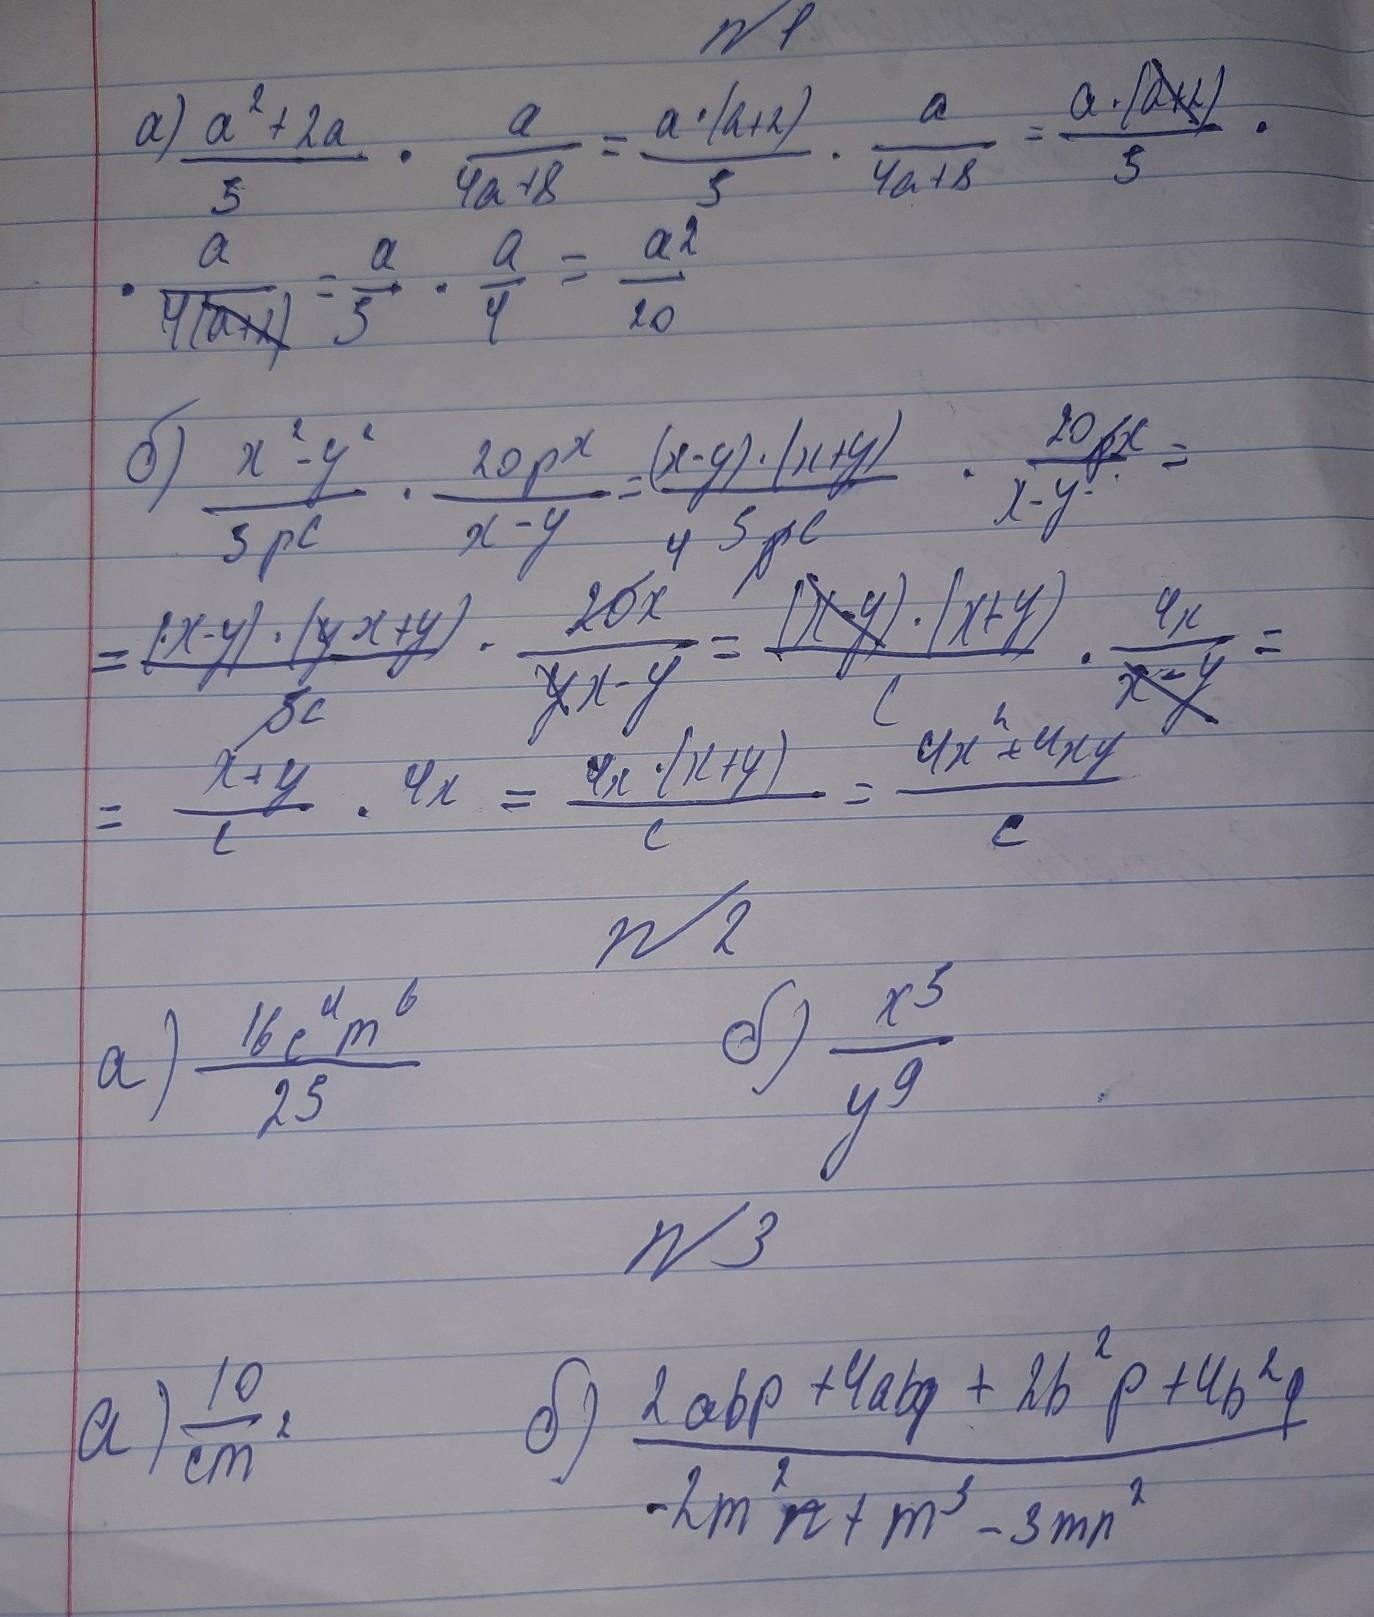 №1
а) (a²+2a)/5 · a/(4a+8) = (a·(a+2))/5 · a/(4a+8) = (a·(a+2))/5 ·
· a/(4(a+2)) = a/5 · a/4 = a²/20
б) (x²-y²)/(5pc) · (20px)/(x-y) = ((x-y)·(x+y))/(5pc) · (20px)/(x-y) =
= ((x-y)·(x+y))/(5c) · (20x)/(x-y) = ((x-y)·(x+y))/c · 4x/(x-y) =
= (x+y)/c · 4x = (4x·(x+y))/c = (4x²+4xy)/c
№2
а) (16c⁴m⁶)/25 б) x⁵/y⁹
№3
а) 10/(cm²) б) (2abp+4abq+2b²p+4b²q)/(-2m²n+m³-3mn²)